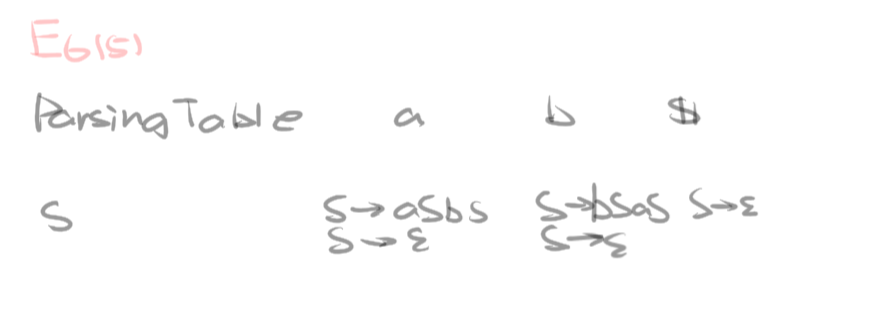 E6(5)
Parsing Table a b $
S S→aSbS S→bSaS S→ε
S→ε S→ε